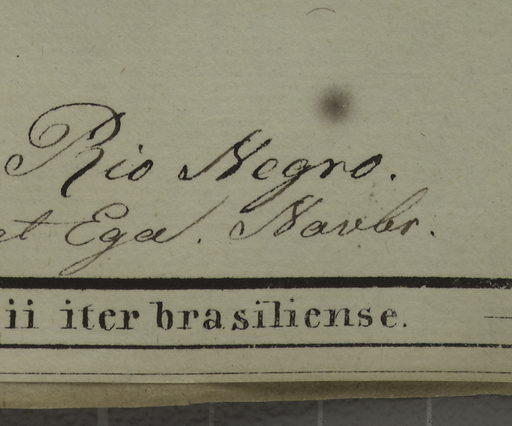 Rio Negro.
et Ega. Novbr.
ii iter brasiliense.